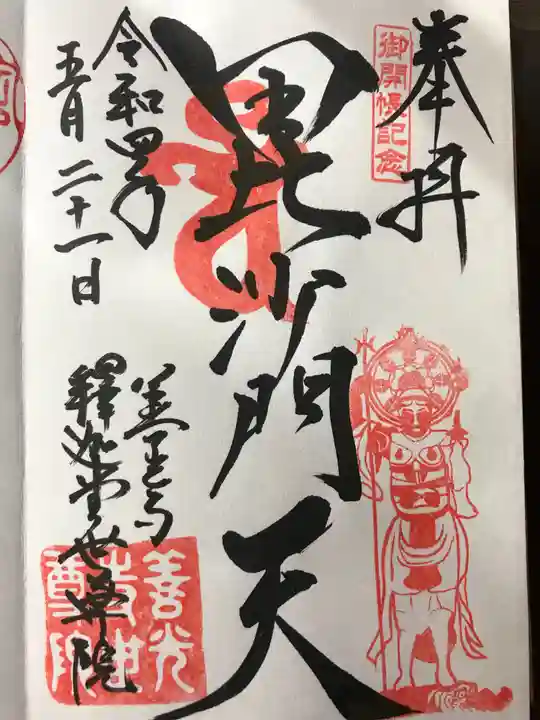 奉拝
御開帳記念
毘沙門天
令和四年
五月二十一日
善光寺
釋迦堂世尊院